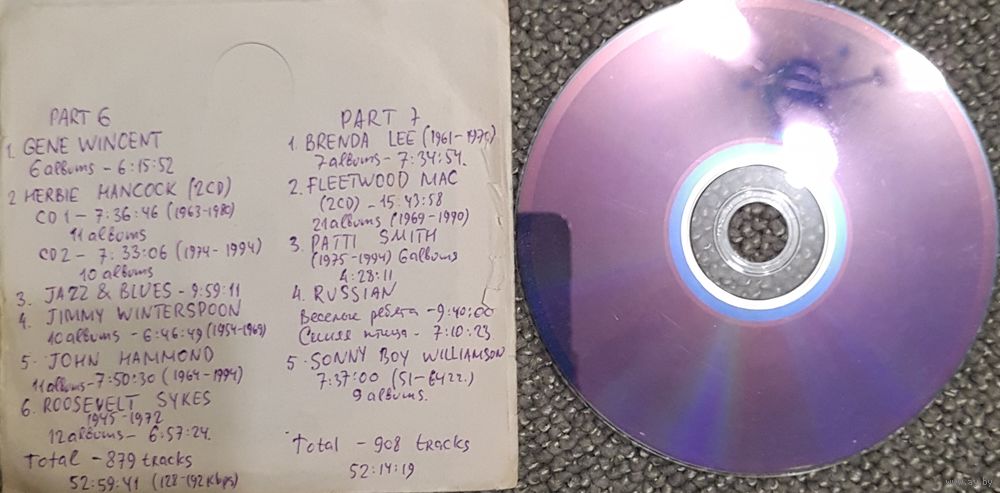 PART 6
1. GENE WINCENT
6 albums - 6:15:52
2 HERBIE HANCOCK (2CD)
CD 1 - 7:36:46 (1963-1980)
11 albums
CD 2 - 7:33:06 (1974-1994)
10 albums
3. JAZZ & BLUES - 9:59:11
4. JIMMY WINTERSPOON
10 albums - 6:46:49 (1954-1969)
5. JOHN HAMMOND
11 albums - 7:50:30 (1964-1994)
6. ROOSEVELT SYKES
1945-1972
12 albums - 6:57:24.
Total - 879 tracks
52:59:41 (128-192 Kbps)
PART 7
1. BRENDA LEE (1961-1975)
7 albums - 7:34:54.
2. FLEETWOOD MAC
(2CD) - 15:43:58
21 albums (1969-1990)
3. PATTI SMITH
(1975-1994) 6 albums
4:28:11
4. RUSSIAN
Веселые ребята - 9:40:00
Синяя птица - 7:10:23
5 SONNY BOY WILLIAMSON
7:37:00 (51-64 гг.)
9 albums.
Total - 908 tracks
52:14:19
www.ay.by